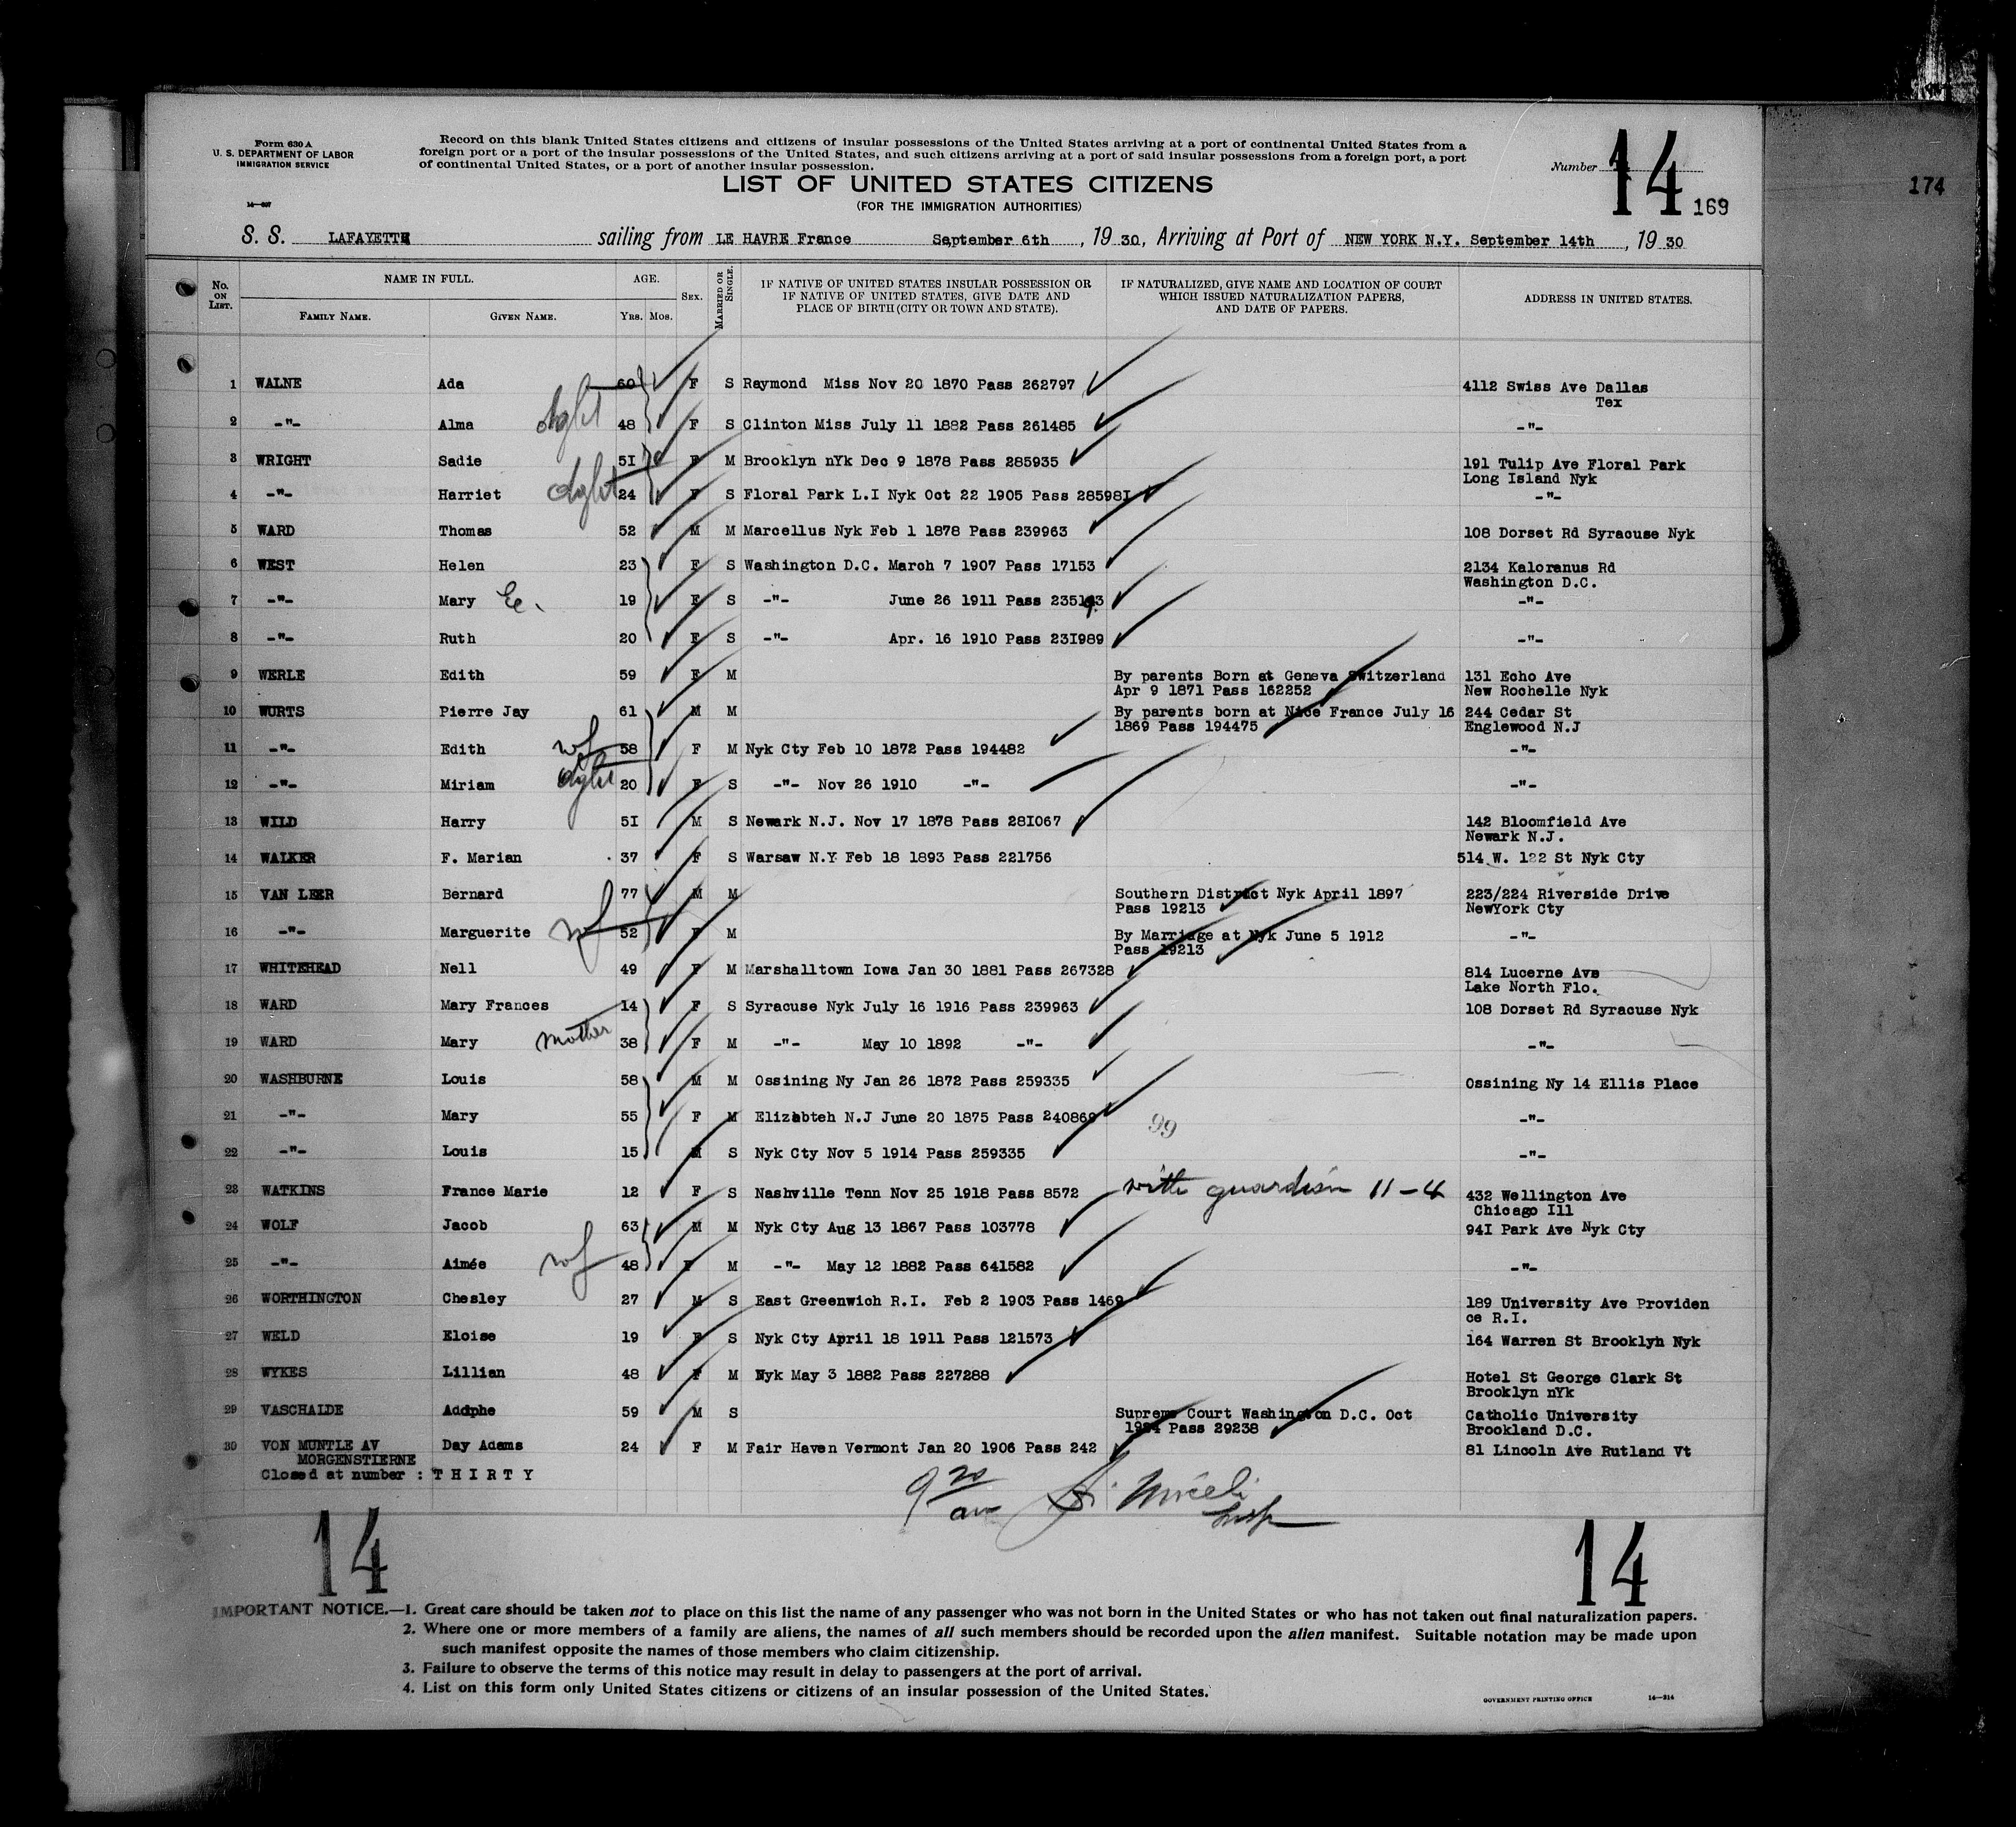 Form 630 A
U. S. DEPARTMENT OF LABOR
IMMIGRATION SERVICE
14—607
Record on this blank United States citizens and citizens of insular possessions of the United States arriving at a port of continental United States from a
foreign port or a port of the insular possessions of the United States, and such citizens arriving at a port of said insular possessions from a foreign port, a port
of continental United States, or a port of another insular possession.
LIST OF UNITED STATES CITIZENS
(FOR THE IMMIGRATION AUTHORITIES)
Number 14
169
174
S. S. LAFAYETTE sailing from LE HAVRE France September 6th, 19 30, Arriving at Port of NEW YORK N.Y. September 14th, 19 30
No. ON LIST. NAME IN FULL. FAMILY NAME. GIVEN NAME. AGE. YRS. MOS. SEX. MARRIED OR SINGLE. IF NATIVE OF UNITED STATES INSULAR POSSESSION OR IF NATIVE OF UNITED STATES, GIVE DATE AND PLACE OF BIRTH (CITY OR TOWN AND STATE). IF NATURALIZED, GIVE NAME AND LOCATION OF COURT WHICH ISSUED NATURALIZATION PAPERS, AND DATE OF PAPERS. ADDRESS IN UNITED STATES.
1 WALNE Ada 60 F S Raymond Miss Nov 20 1870 Pass 262797 4112 Swiss Ave Dallas
Tex
2 -"- Alma dght 48 F S Clinton Miss July 11 1882 Pass 261485 -"-
3 WRIGHT Sadie 5I F M Brooklyn nYk Dec 9 1878 Pass 285935 191 Tulip Ave Floral Park
Long Island Nyk
4 -"- Harriet dght 24 F S Floral Park L.I Nyk Oct 22 1905 Pass 28598I -"-
5 WARD Thomas 52 M M Marcellus Nyk Feb 1 1878 Pass 239963 108 Dorset Rd Syracuse Nyk
6 WEST Helen 23 F S Washington D.C. March 7 1907 Pass 17153 2134 Kaloranus Rd
Washington D.C.
7 -"- Mary E. 19 F S -"- June 26 1911 Pass -"-
8 -"- Ruth 20 F S -"- Apr. 16 1910 Pass 23I989 -"-
9 WERLE Edith 59 F M By parents Born at Geneva Switzerland 131 Echo Ave
Apr 9 1871 Pass 162252 New Rochelle Nyk
10 WURTS Pierre Jay 61 M M By parents born at Nice France July 16 244 Cedar St
1869 Pass 194475 Englewood N.J
11 -"- Edith wf 58 F M Nyk Cty Feb 10 1872 Pass 194482 -"-
12 -"- Miriam dght 20 F S -"- Nov 26 1910 -"- -"-
13 WILD Harry 5I M S Newark N.J. Nov 17 1878 Pass 28I067 142 Bloomfield Ave
Newark N.J.
14 WALKER F. Marian 37 F S Warsaw N.Y Feb 18 1893 Pass 221756 514 W. 122 St Nyk Cty
15 VAN LEER Bernard 77 M M Southern District Nyk April 1897 223/224 Riverside Drive
Pass 19213 NewYork Cty
16 -"- Marguerite wf 52 F M By Marriage at Nyk June 5 1912 -"-
Pass 19213
17 WHITEHEAD Nell 49 F M Marshalltown Iowa Jan 30 1881 Pass 267328 814 Lucerne Ave
Lake North Flo.
18 WARD Mary Frances 14 F S Syracuse Nyk July 16 1916 Pass 239963 108 Dorset Rd Syracuse Nyk
19 WARD Mary mother 38 F M -"- May 10 1892 -"- -"-
20 WASHBURNE Louis 58 M M Ossining Ny Jan 26 1872 Pass 259335 Ossining Ny 14 Ellis Place
21 -"- Mary 55 F M Elizabteh N.J June 20 1875 Pass 240869 -"-
99
22 -"- Louis 15 M S Nyk Cty Nov 5 1914 Pass 259335 -"-
23 WATKINS France Marie 12 F S Nashville Tenn Nov 25 1918 Pass 8572 with guardian 11-4 432 Wellington Ave
Chicago Ill
24 WOLF Jacob 63 M M Nyk Cty Aug 13 1867 Pass 103778 94I Park Ave Nyk Cty
25 -"- Aimée wf 48 F M -"- May 12 1882 Pass 641582 -"-
26 WORTHINGTON Chesley 27 M S East Greenwich R.I. Feb 2 1903 Pass 1469 189 University Ave Providen
ce R.I.
27 WELD Eloise 19 F S Nyk Cty April 18 1911 Pass 121573 164 Warren St Brooklyn Nyk
28 WYKES Lillian 48 F M Nyk May 3 1882 Pass 227288 Hotel St George Clark St
Brooklyn nYk
29 VASCHALDE Addphe 59 M S Supreme Court Washington D.C. Oct Catholic University
Pass 29238 Brookland D.C.
30 VON MUNTLE AV Day Adams 24 F M Fair Haven Vermont Jan 20 1906 Pass 242 81 Lincoln Ave Rutland Vt
MORGENSTIERNE
Closed at number : T H I R T Y
Insp
14
14
IMPORTANT NOTICE.—1. Great care should be taken not to place on this list the name of any passenger who was not born in the United States or who has not taken out final naturalization papers.
2. Where one or more members of a family are aliens, the names of all such members should be recorded upon the alien manifest. Suitable notation may be made upon
such manifest opposite the names of those members who claim citizenship.
3. Failure to observe the terms of this notice may result in delay to passengers at the port of arrival.
4. List on this form only United States citizens or citizens of an insular possession of the United States.
GOVERNMENT PRINTING OFFICE 14—314